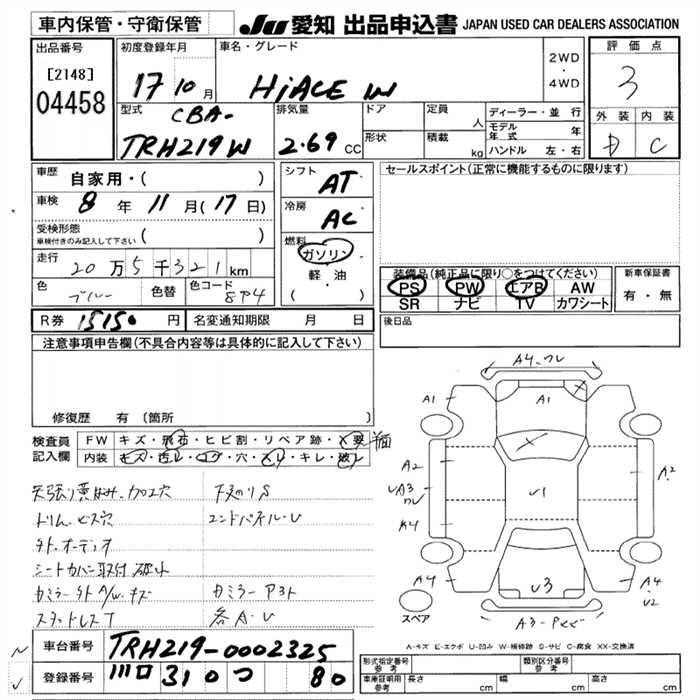 車内保管・守衛保管
JU 愛知 出品申込書 JAPAN USED CAR DEALERS ASSOCIATION
出品番号
[2148]
04458
初度登録年月
17 10月
車名・グレード
HiACE W
2WD
・
4WD
評価点
3
外装 内装
D C
型式
CBA-
TRH219W
排気量
2.69 CC
ドア
形状
定員 人
積載 kg
ディーラー・並行
モデル年式 年
ハンドル 左・右
車歴
自家用・( )
車検 8年 11月(17日)
受検形態
車検付きのみ記入して下さい ( )
走行 20万5千321km
色 ブルー 色替 色コード 8P4
シフト AT
冷房 AC
燃料
ガソリン
軽・油
( )
セールスポイント(正常に機能するものに限ります)
装備品(純正品に限り○をつけてください)
PS PW エアB AW
SR ナビ TV カワシート
新車保証書
有・無
後日品
R券 15150円 名変通知期限 月 日
注意事項申告欄(不具合内容等は具体的に記入して下さい)
修復歴 有(箇所
検査員
記入欄
FW キズ・飛石・ヒビ割・リペア跡・X要
内装 キズ・汚レ・コゲ・穴・スレ・キレ・破レ
下廻りS
ドリム、ビス穴 エンドパネル-U
外.オーディオ
シートカバー取付
A/W キズ
スタッドレスT 各A-U
A4
A1 A1
A2 A2
UA3
U1
A4 U3 A4
U2
スペア
A-キズ E-エクボ U-凹み W-補修跡 S-サビ C-腐食 XX-交換済
車台番号 TRH219-0002325
登録番号 310 つ 80
形式指定番号 参考
類別区分番号 参考
車庫証明用 参考
長さ cm 幅 cm 高さ cm